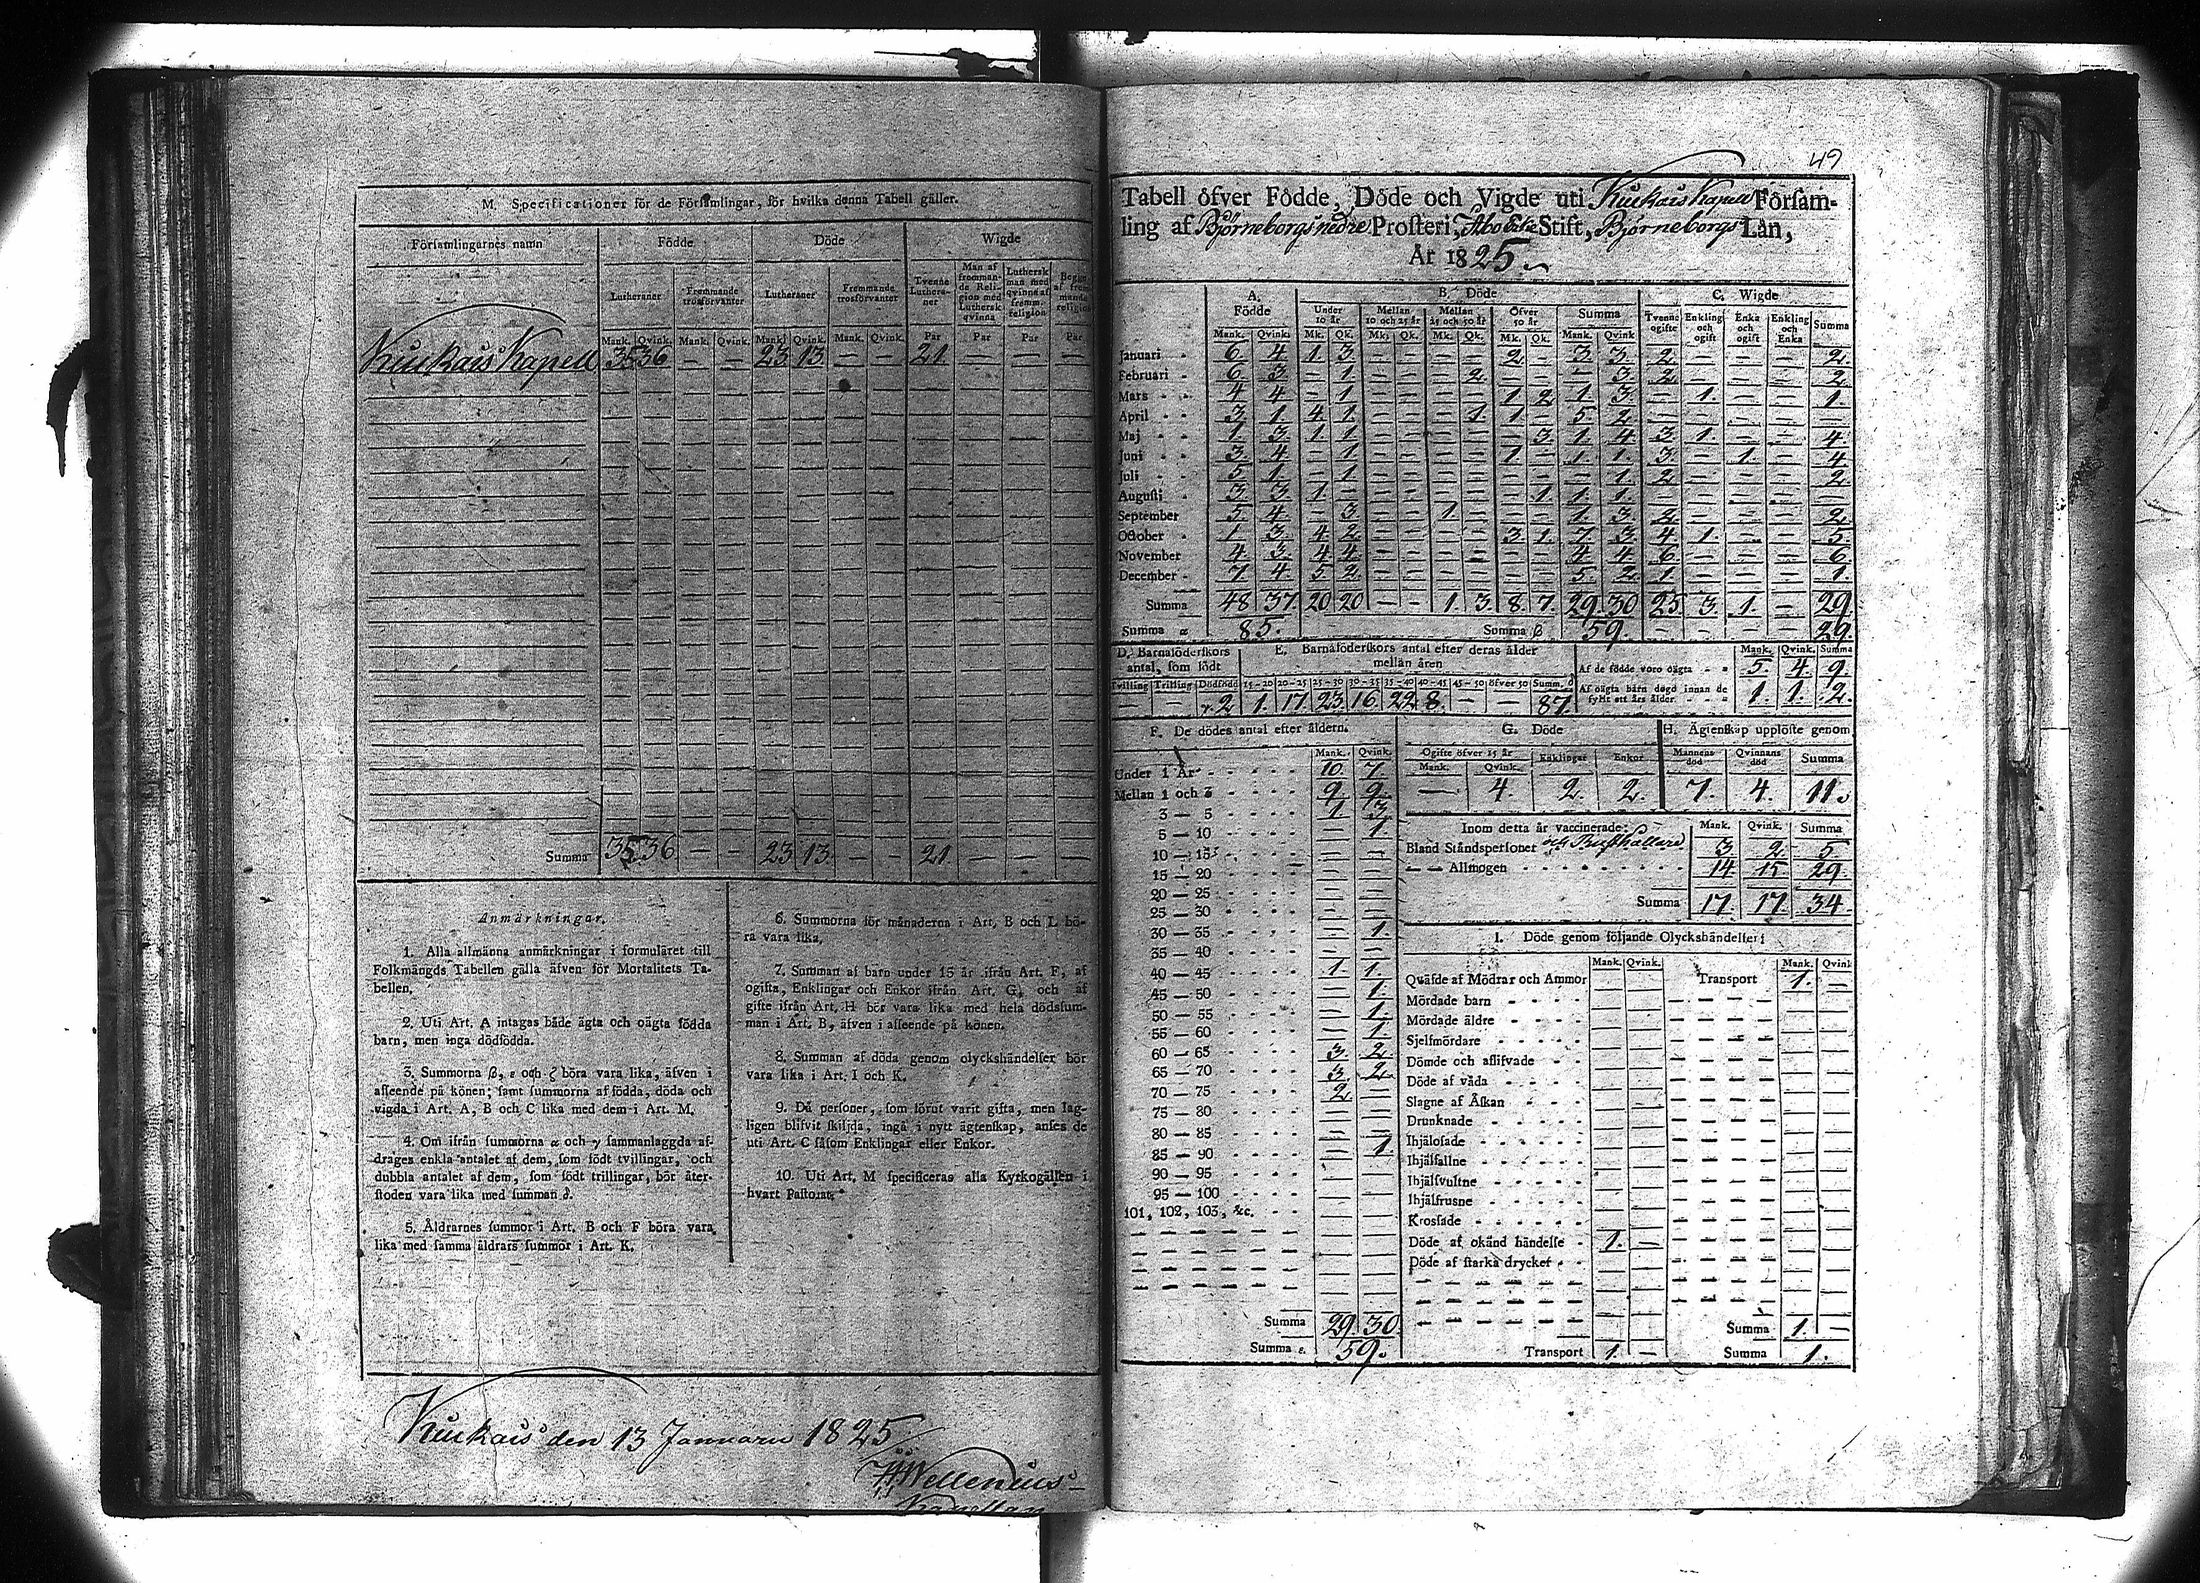 M. Specificationer för de Församlingar, för hvilka denna Tabell gäller.
Församlingarnes namn Födde Döde Wigde
Lutheraner Fremmande trosförvanter Lutheraner Fremmande trosförvanter Tvenne Lutheraner Man af fremmande Religion med Luthersk qvinna Luthersk man med qvinna af fremm. religion Begge af fremmande religion
Mank. Qvink. Mank. Qvink. Mank. Qvink. Mank. Qvink. Par Par Par Par
Kiukais Kapell 35 36 — — 23 13 — — 21 — — —
Summa 35 36 — — 23 13 — — 21 — — —
Anmärkningar.
1. Alla allmänna anmärkningar i formuläret till
Folkmängds Tabellen gälla äfven för Mortalitets Ta-
bellen.
2. Uti Art. A intagas både ägta och oägta födda
barn, men inga dödfödda.
3. Summorna β, ε och ζ böra vara lika, äfven i
afseende på könen; samt summorna af födda, döda och
vigda i Art. A, B och C lika med dem i Art. M.
4. Om ifrån summorna α och γ sammanlaggda af-
drages enkla antalet af dem, som födt tvillingar, och
dubbla antalet af dem, som födt trillingar, bör åter-
stoden vara lika med summan δ.
5. Åldrarnes summor i Art. B och F böra vara
lika med samma åldrars summor i Art. K.
6. Summorna för månaderna i Art. B och L bö-
ra vara lika.
7. Summan af barn under 15 år ifrån Art. F, af
ogifta, Enklingar och Enkor ifrån Art. G, och af
gifte ifrån Art. H bör vara lika med hela dödssum-
man i Art. B, äfven i afseende på könen.
8. Summan af döda genom olyckshändelser bör
vara lika i Art. I och K.
9. Då personer, som förut varit gifta, men lag-
ligen blifvit skiljda, ingå i nytt ägtenskap, anses de
uti Art. C såsom Enklingar eller Enkor.
10. Uti Art. M specificeras alla Kyrkogällen i
hvart Pastorat.
Kiukais den 13 Januarii 1825
Wellenius
Kapellan
49
Tabell öfver Födde, Döde och Vigde uti Kiukais Kapell Försam-
ling af Björneborgs nedre Prosteri, Åbo Erke Stift, Björneborgs Län,
År 1825.
A. Födde B. Döde C. Wigde
Under 10 år Mellan 10 och 25 år Mellan 25 och 50 år Öfver 50 år Summa Tvenne ogifte Enkling och ogift Enka och ogift Enkling och Enka Summa
Mank. Qvink. Mk. Qk. Mk. Qk. Mk. Qk. Mk. Qk. Mank. Qvink.
Januari 6. 4. 1. 3. — — — — 2. — 3. 3. 2. — — — 2.
Februari 6. 3. — 1. — — — 2. — — — 3. 2. — — — 2.
Mars 4. 4. — 1. — — — — 1. 2. 1. 3. — 1. — — 1.
April 3. 1. 4. 1. — — — 1. 1. — 5. 2. — — — — —
Maj 1. 3. 1. 1. — — — — — 3. 1. 4. 3. 1. — — 4.
Juni 3. 4. — 1. — — — — 1. — 1. 1. 3. — 1. — 4.
Juli 5. 1. — 1. — — — — — — — 1. 2. — — — 2.
Augusti 3. 3. 1. — — — — — — 1. 1. 1. — — — — —
September 5. 4. — 3. — — 1. — — — 1. 3. 2. — — — 2.
October 1. 3. 4. 2. — — — — 3. 1. 7. 3. 4. 1. — — 5.
November 4. 3. 4. 4. — — — — — — 4. 4. 6. — — — 6.
December 7. 4. 5. 2. — — — — — — 5. 2. 1. — — — 1.
Summa 48 37. 20 20 — — 1. 3. 8. 7. 29. 30 25 3. 1. — 29.
Summa α 85. Summa β 59. — — — — 29.
D. Barnaföderskors antal, som födt E. Barnaföderskors antal efter deras ålder mellan åren Mank. Qvink. Summa
Tvilling Trilling Dödfödd 15-20 20-25 25-30 30-35 35-40 40-45 45-50 öfver 50 Summ. δ
— — γ. 2 1. 17. 23. 16. 22. 8. — — 87.
Af de födde voro oägta 5 4. 9.
Af oägta barn dogo innan de fyllt ett års ålder 1. 1. 2.
F. De dödes antal efter åldern.
Mank. Qvink.
Under 1 År 10. 7.
Mellan 1 och 3 9. 9.
3 — 5 1 3.
5 — 10 — 1.
10 — 15 — —
15 — 20 — —
20 — 25 — —
25 — 30 — —
30 — 35 — 1.
35 — 40 — —
40 — 45 1. 1.
45 — 50 — 1.
50 — 55 — 1.
55 — 60 — 1.
60 — 65 3. 2.
65 — 70 3. 2.
70 — 75 2. —
75 — 80 — —
80 — 85 — —
85 — 90 — 1.
90 — 95 — —
95 — 100 — —
101, 102, 103, &c. — —
Summa 29. 30.
Summa ε. 59.
G. Döde
Ogifte öfver 15 år Enklingar Enkor
Mank. Qvink.
— 4. 2. 2.
H. Ägtenskap upplöste genom
Mannens död Qvinnans död Summa
7. 4. 11.
Inom detta år vaccinerade: Mank. Qvink. Summa
Bland Ståndspersoner och Rusthållare 3. 2. 5
— — Allmogen 14. 15. 29.
Summa 17. 17. 34.
I. Döde genom följande Olyckshändelser:
Mank. Qvink. Mank. Qvink
Qväfde af Mödrar och Ammor — — Transport 1. —
Mördade barn — —
Mördade äldre — —
Sjelfmördare — —
Dömde och aflifvade — —
Döde af våda — —
Slagne af Åskan — —
Drunknade — —
Ihjälosade — —
Ihjälfallne — —
Ihjälsvultne — —
Ihjälfrusne — —
Krossade — —
Döde af okänd händelse 1. —
Döde af starka drycker — —
Summa 1. —
Transport 1. — Summa 1.